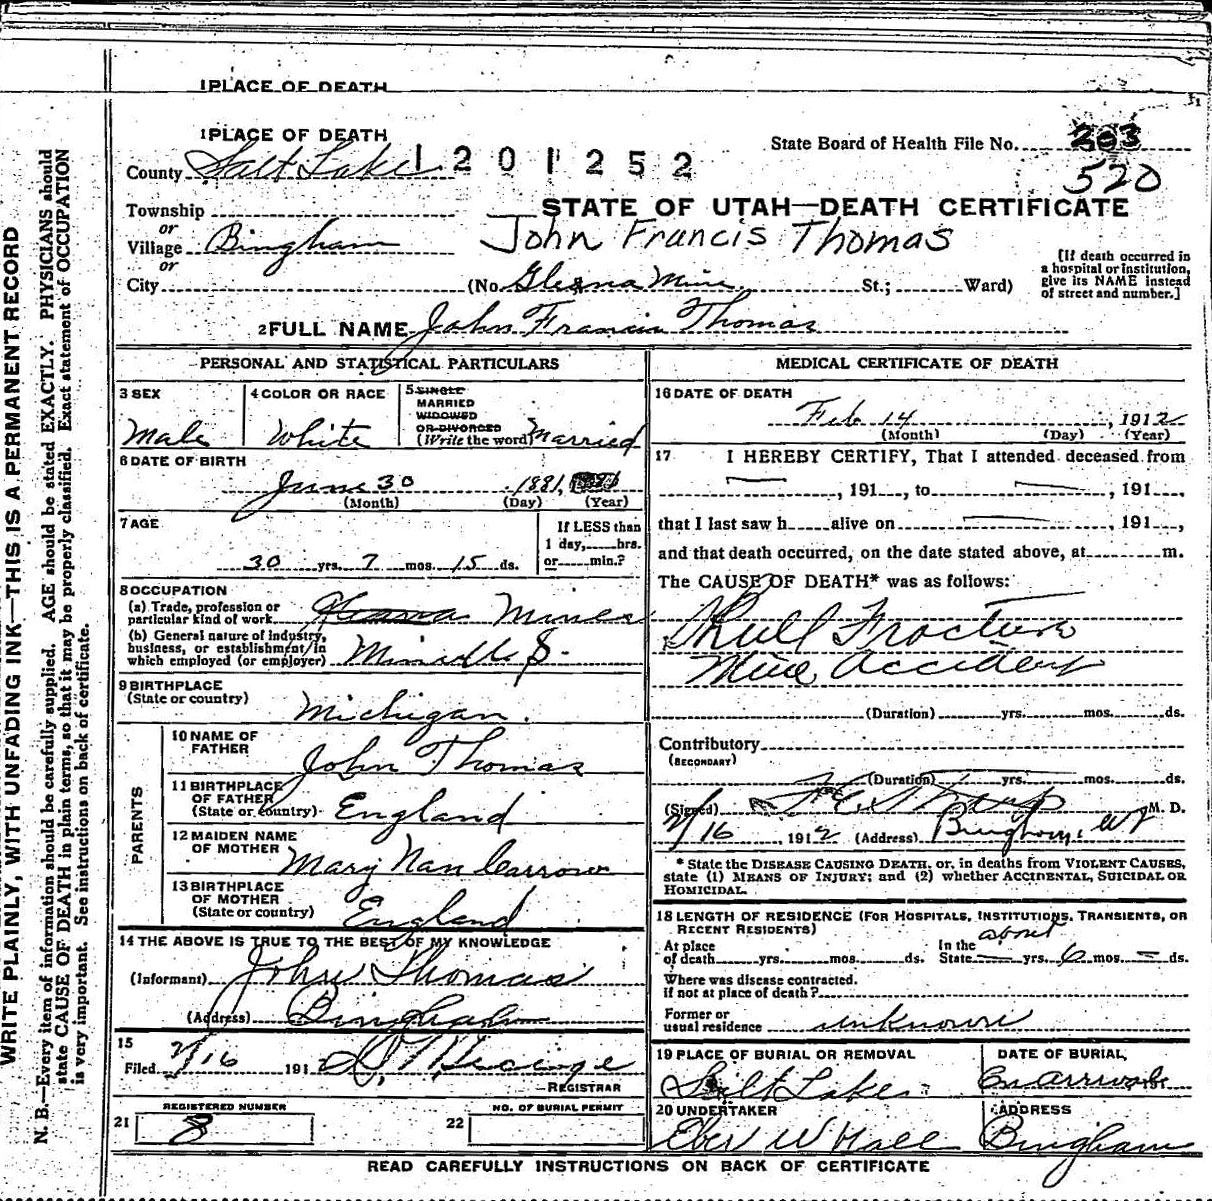 1 PLACE OF DEATH
1 PLACE OF DEATH
State Board of Health File No. 203
520
County Salt Lake 1201252
STATE OF UTAH—DEATH CERTIFICATE
Township
or
Village Bingham
John Francis Thomas
or
City (No. Mine St.; Ward)
[If death occurred in
a hospital or institution,
give its NAME instead
of street and number.]
2 FULL NAME John Francis Thomas
PERSONAL AND STATISTICAL PARTICULARS
3 SEX
Male
4 COLOR OR RACE
White
5 SINGLE
MARRIED
WIDOWED
OR DIVORCED
(Write the word) Married
6 DATE OF BIRTH
June 30, 1881,
(Month) (Day) (Year)
7 AGE
30 yrs. 7 mos. 15 ds.
If LESS than
1 day, hrs.
or min.?
8 OCCUPATION
(a) Trade, profession or
particular kind of work Miner
(b) General nature of industry,
business, or establishment in
which employed (or employer)
9 BIRTHPLACE
(State or country)
Michigan.
PARENTS
10 NAME OF
FATHER
John Thomas
11 BIRTHPLACE
OF FATHER
(State or country) England
12 MAIDEN NAME
OF MOTHER
Mary Nan Carrow
13 BIRTHPLACE
OF MOTHER
(State or country) England
14 THE ABOVE IS TRUE TO THE BEST OF MY KNOWLEDGE
(Informant) John Thomas
(Address) Bingham
15
Filed 2/16 191
REGISTRAR
21 REGISTERED NUMBER
8
22 NO. OF BURIAL PERMIT
MEDICAL CERTIFICATE OF DEATH
16 DATE OF DEATH
Feb 14, 1912
(Month) (Day) (Year)
17 I HEREBY CERTIFY, That I attended deceased from
, 191 , to , 191 ,
that I last saw h alive on , 191 ,
and that death occurred, on the date stated above, at m.
The CAUSE OF DEATH* was as follows:
Skull Fracture
Mine Accident
(Duration) yrs. mos. ds.
Contributory
(SECONDARY)
(Duration) yrs. mos. ds.
(Signed) M. D.
2/16 1912 (Address) Bingham, Ut
* State the DISEASE CAUSING DEATH, or, in deaths from VIOLENT CAUSES,
state (1) MEANS OF INJURY; and (2) whether ACCIDENTAL, SUICIDAL OR
HOMICIDAL.
18 LENGTH OF RESIDENCE (FOR HOSPITALS, INSTITUTIONS, TRANSIENTS, OR
RECENT RESIDENTS)
about
At place
of death yrs. mos. ds.
In the
State — yrs. 6 mos. — ds.
Where was disease contracted,
if not at place of death?
Former or
usual residence unknown
19 PLACE OF BURIAL OR REMOVAL
Salt Lake
DATE OF BURIAL,
On arrival
20 UNDERTAKER
Eber W Hall
ADDRESS
Bingham
READ CAREFULLY INSTRUCTIONS ON BACK OF CERTIFICATE
WRITE PLAINLY, WITH UNFADING INK—THIS IS A PERMANENT RECORD
N. B.—Every item of information should be carefully supplied. AGE should be stated EXACTLY. PHYSICIANS should
state CAUSE OF DEATH in plain terms, so that it may be properly classified. Exact statement of OCCUPATION
is very important. See instructions on back of certificate.